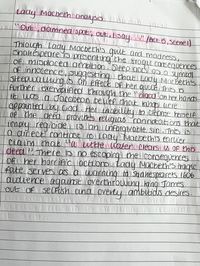 Lady Macbeth analysis
"Out, damned spot, out, I say" (Act 5, Scene 1)
Through Lady Macbeth's guilt and madness,
Shakespeare is presenting the tragic consequences
of misplaced ambition. Sleep acts as a symbol
of innocence, suggesting that Lady Macbeth's
sleepwalking is an effect of her guilt. This is
further exemplified through the "blood" on her hands
It was a Jacobean belief that kings were
appointed by God. Her inability to cleanse herself
of the deed provides religious connotations that
imply regicide is an unforgivable sin. This is
a direct contrast to Lady Macbeth's earlier
claim that "a little water clears us of this
deed." There is no escaping the consequences
of her horrific actions. Lady Macbeth's tragic
fate serves as a warning to Shakespeare's 1606
audience against overthrowing King James
out of selfish and overly ambitious desires.